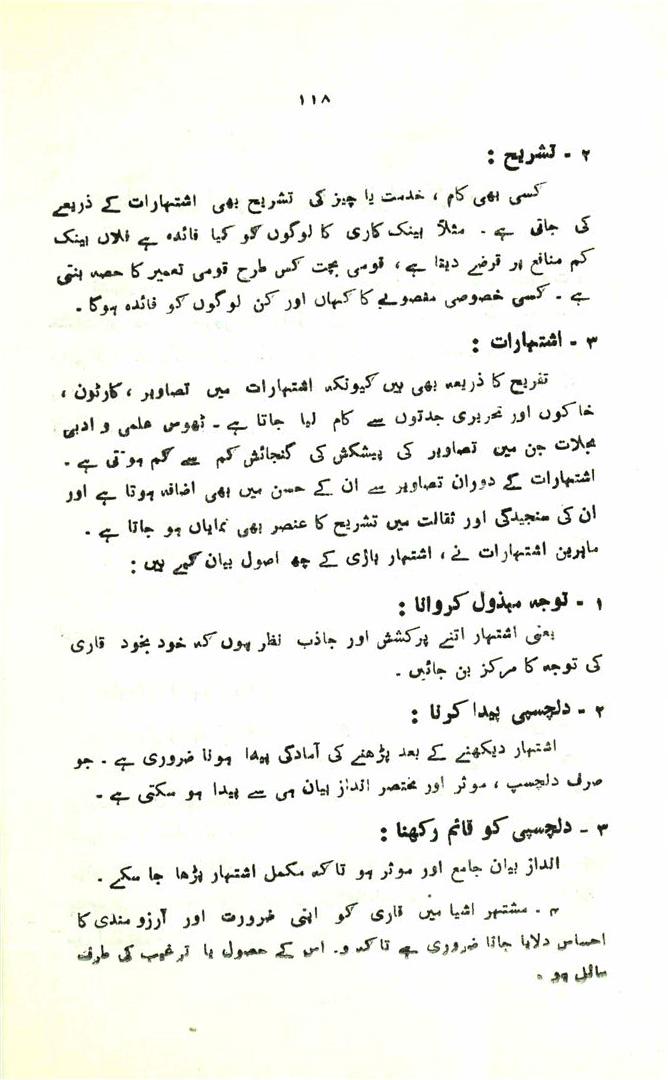 ۱۱۸
۲ - تشریح :
کسی بھی کام ، خدمت یا چیز کی تشریح بھی اشتہارات کے ذریعے
کی جاتی ہے ۔ مثلاً بینک کاری کا لوگوں کو کیا فائدہ ہے فلاں بینک
کم منافع پر قرضے دیتا ہے ، قومی بچت کس طرح قومی تعمیر کا حصہ بنتی
ہے ۔ کسی خصوصی منصوبے کا کہاں اور کن لوگوں کو فائدہ ہوگا ۔
۳ - اشتہارات :
تفریح کا ذریعہ بھی ہیں کیونکہ اشتہارات میں تصاویر ، کارٹون ،
خاکوں اور تحریری جدتوں سے کام لیا جاتا ہے ۔ ٹھوس علمی و ادبی
مجلات جن میں تصاویر کی پیشکش کی گنجائش کم سے کم ہوتی ہے ۔
اشتہارات کے دوران تصاویر سے ان کے حسن میں بھی اضافہ ہوتا ہے اور
ان کی سنجیدگی اور ثقالت میں تشریح کا عنصر بھی نمایاں ہو جاتا ہے ۔
ماہرین اشتہارات نے ، اشتہار بازی کے چھ اصول بیان کیے ہیں :
۱ - توجہ مبذول کروانا :
یعنی اشتہار اتنے پرکشش اور جاذب نظر ہوں کہ خود بخود قاری
کی توجہ کا مرکز بن جائیں ۔
۲ - دلچسپی پیدا کرنا :
اشتہار دیکھنے کے بعد پڑھنے کی آمادگی پیدا ہونا ضروری ہے ۔ جو
صرف دلچسپ ، موثر اور مختصر انداز بیان ہی سے پیدا ہو سکتی ہے ۔
۳ - دلچسپی کو قائم رکھنا :
انداز بیان جامع اور موثر ہو تاکہ مکمل اشتہار پڑھا جا سکے ۔
۴ - مشتہر اشیا میں قاری کو اپنی ضرورت اور آرزو مندی کا
احساس دلایا جانا ضروری ہے تاکہ وہ اس کے حصول یا ترغیب کی طرف
مائل ہو ۔